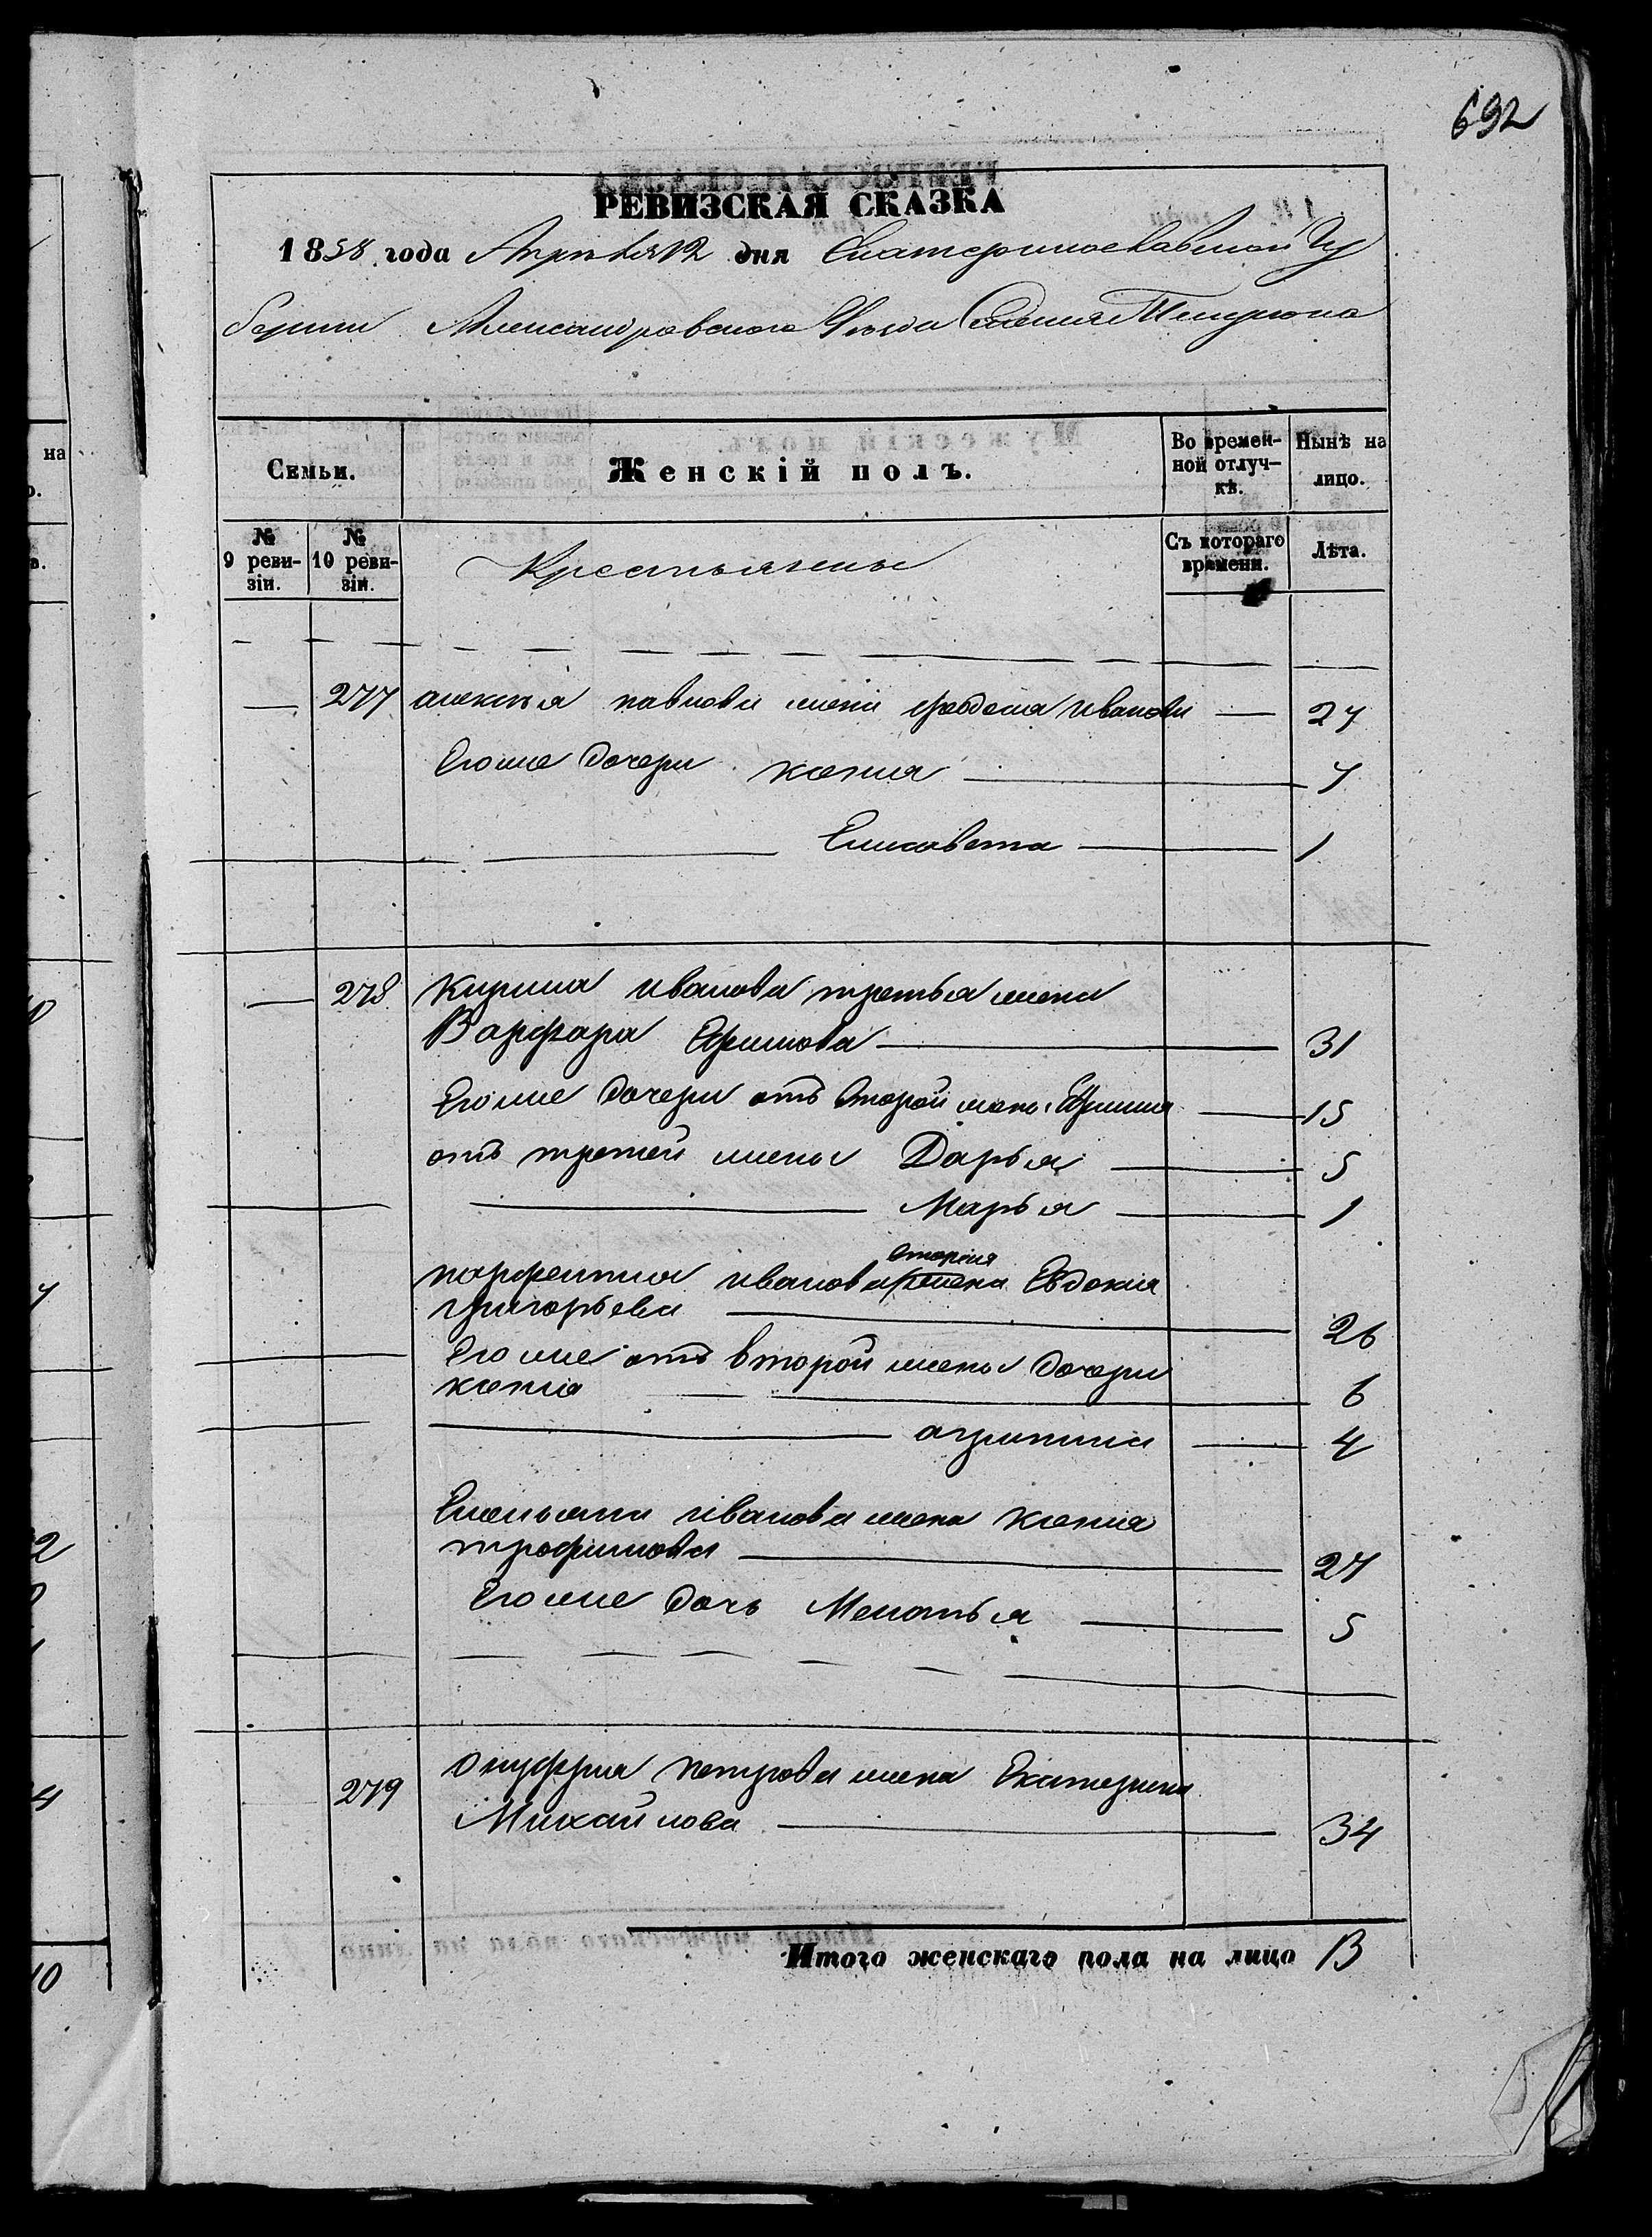 692
РЕВИЗСКАЯ СКАЗКА
1858 года Апреля 12 дня Екатеринославской Гу
бернии Александровского Уезда Селения
Семьи. Женскій полъ. Во времен-ной отлуч-кѣ. Нынѣ на лицо.
№ 9 реви-зіи. № 10 реви-зіи. Крестьянины Съ котораго времени. Лѣта.
277 алексея павлова жена феодосия Иванова 27
Его же дочери ксения 7
Елисавета 1
278 Кирила иванова третья жена
Варфара Ефимова 31
Его же дочери отъ второй жены 15
отъ третей жены Дарья 5
Марья 1
вторая
парфентия иванова жена Евдокия
григорьева 26
Его же отъ второй жены дочери
ксения 6
агрипина 4
Емельяна иванова жена ксения
трофимова 27
Его же дочь Меланья 5
279 Онуфрия петрова жена Екатерина
Михайлова 34
Итого женскаго пола на лицо 13